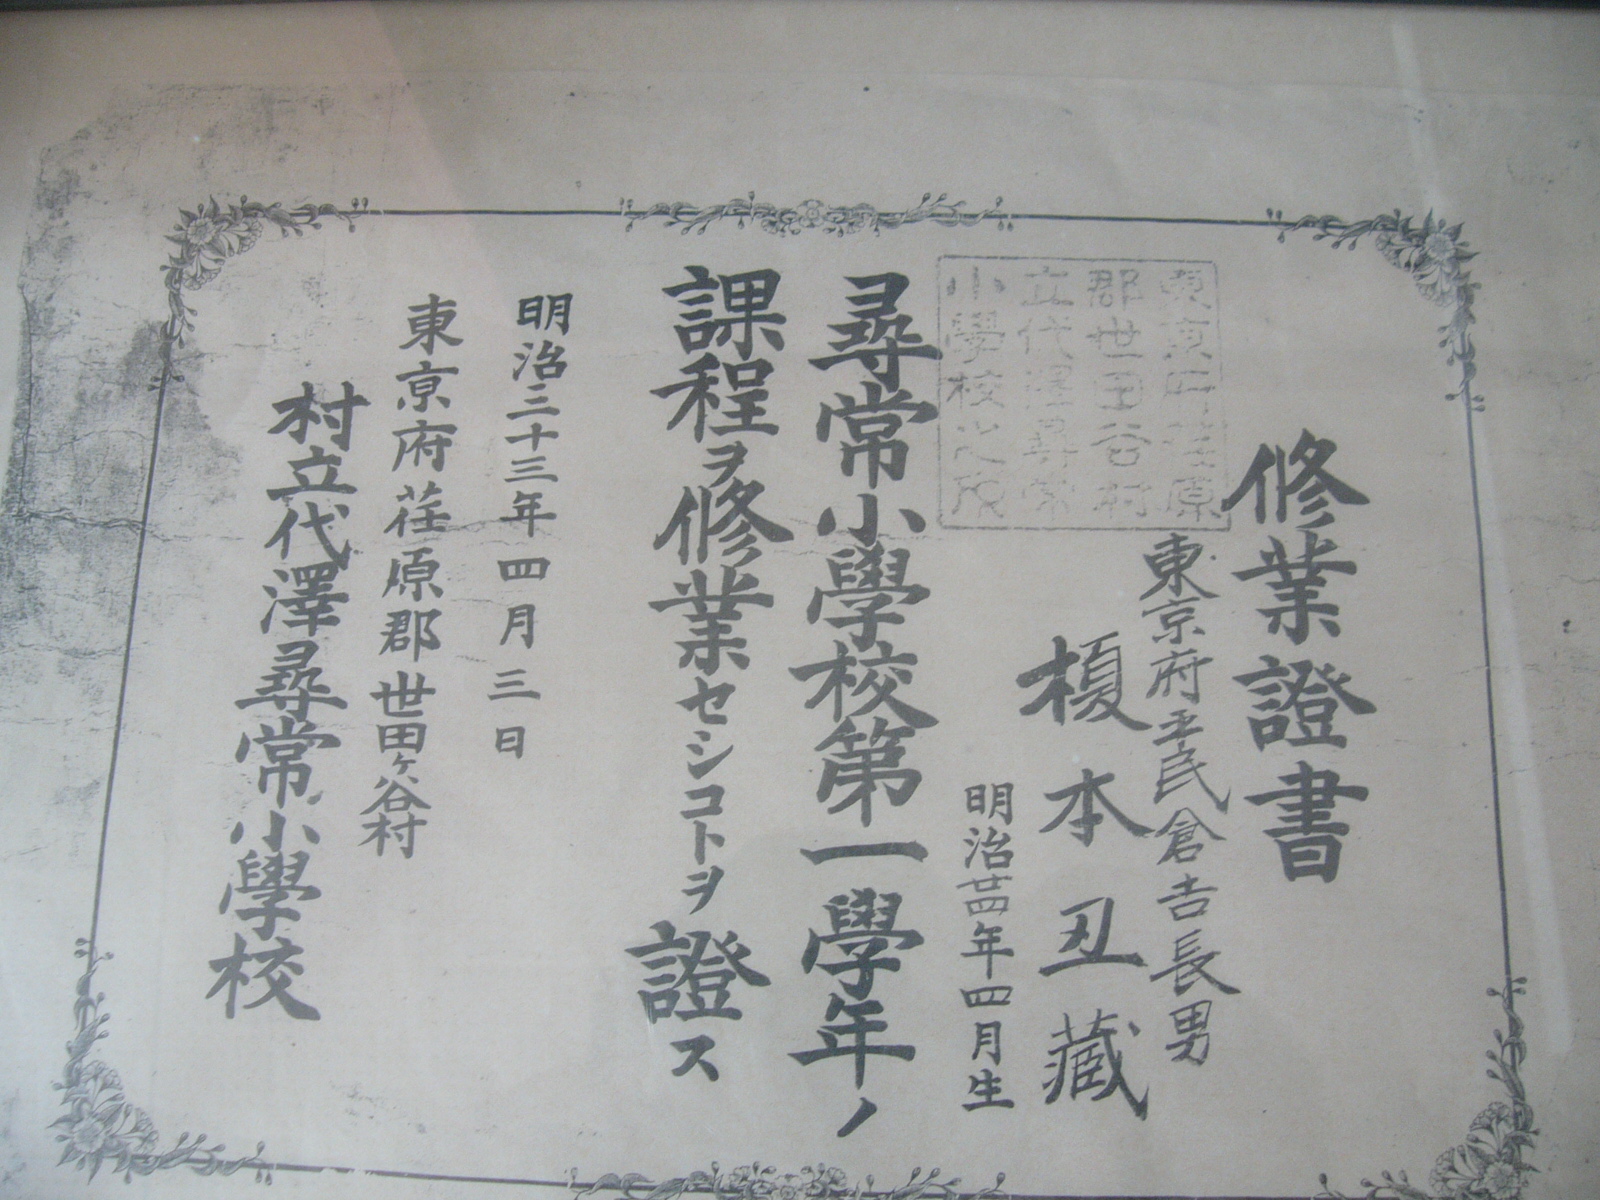 修業證書
東京府平民倉吉長男
榎本丑藏
明治廿四年四月生
東京府荏原
郡世田谷村
立代澤尋常
小學校之印
尋常小學校第一學年ノ
課程ヲ修業セシコトヲ證ス
明治三十三年四月三日
東京府荏原郡世田ヶ谷村
村立代澤尋常小學校